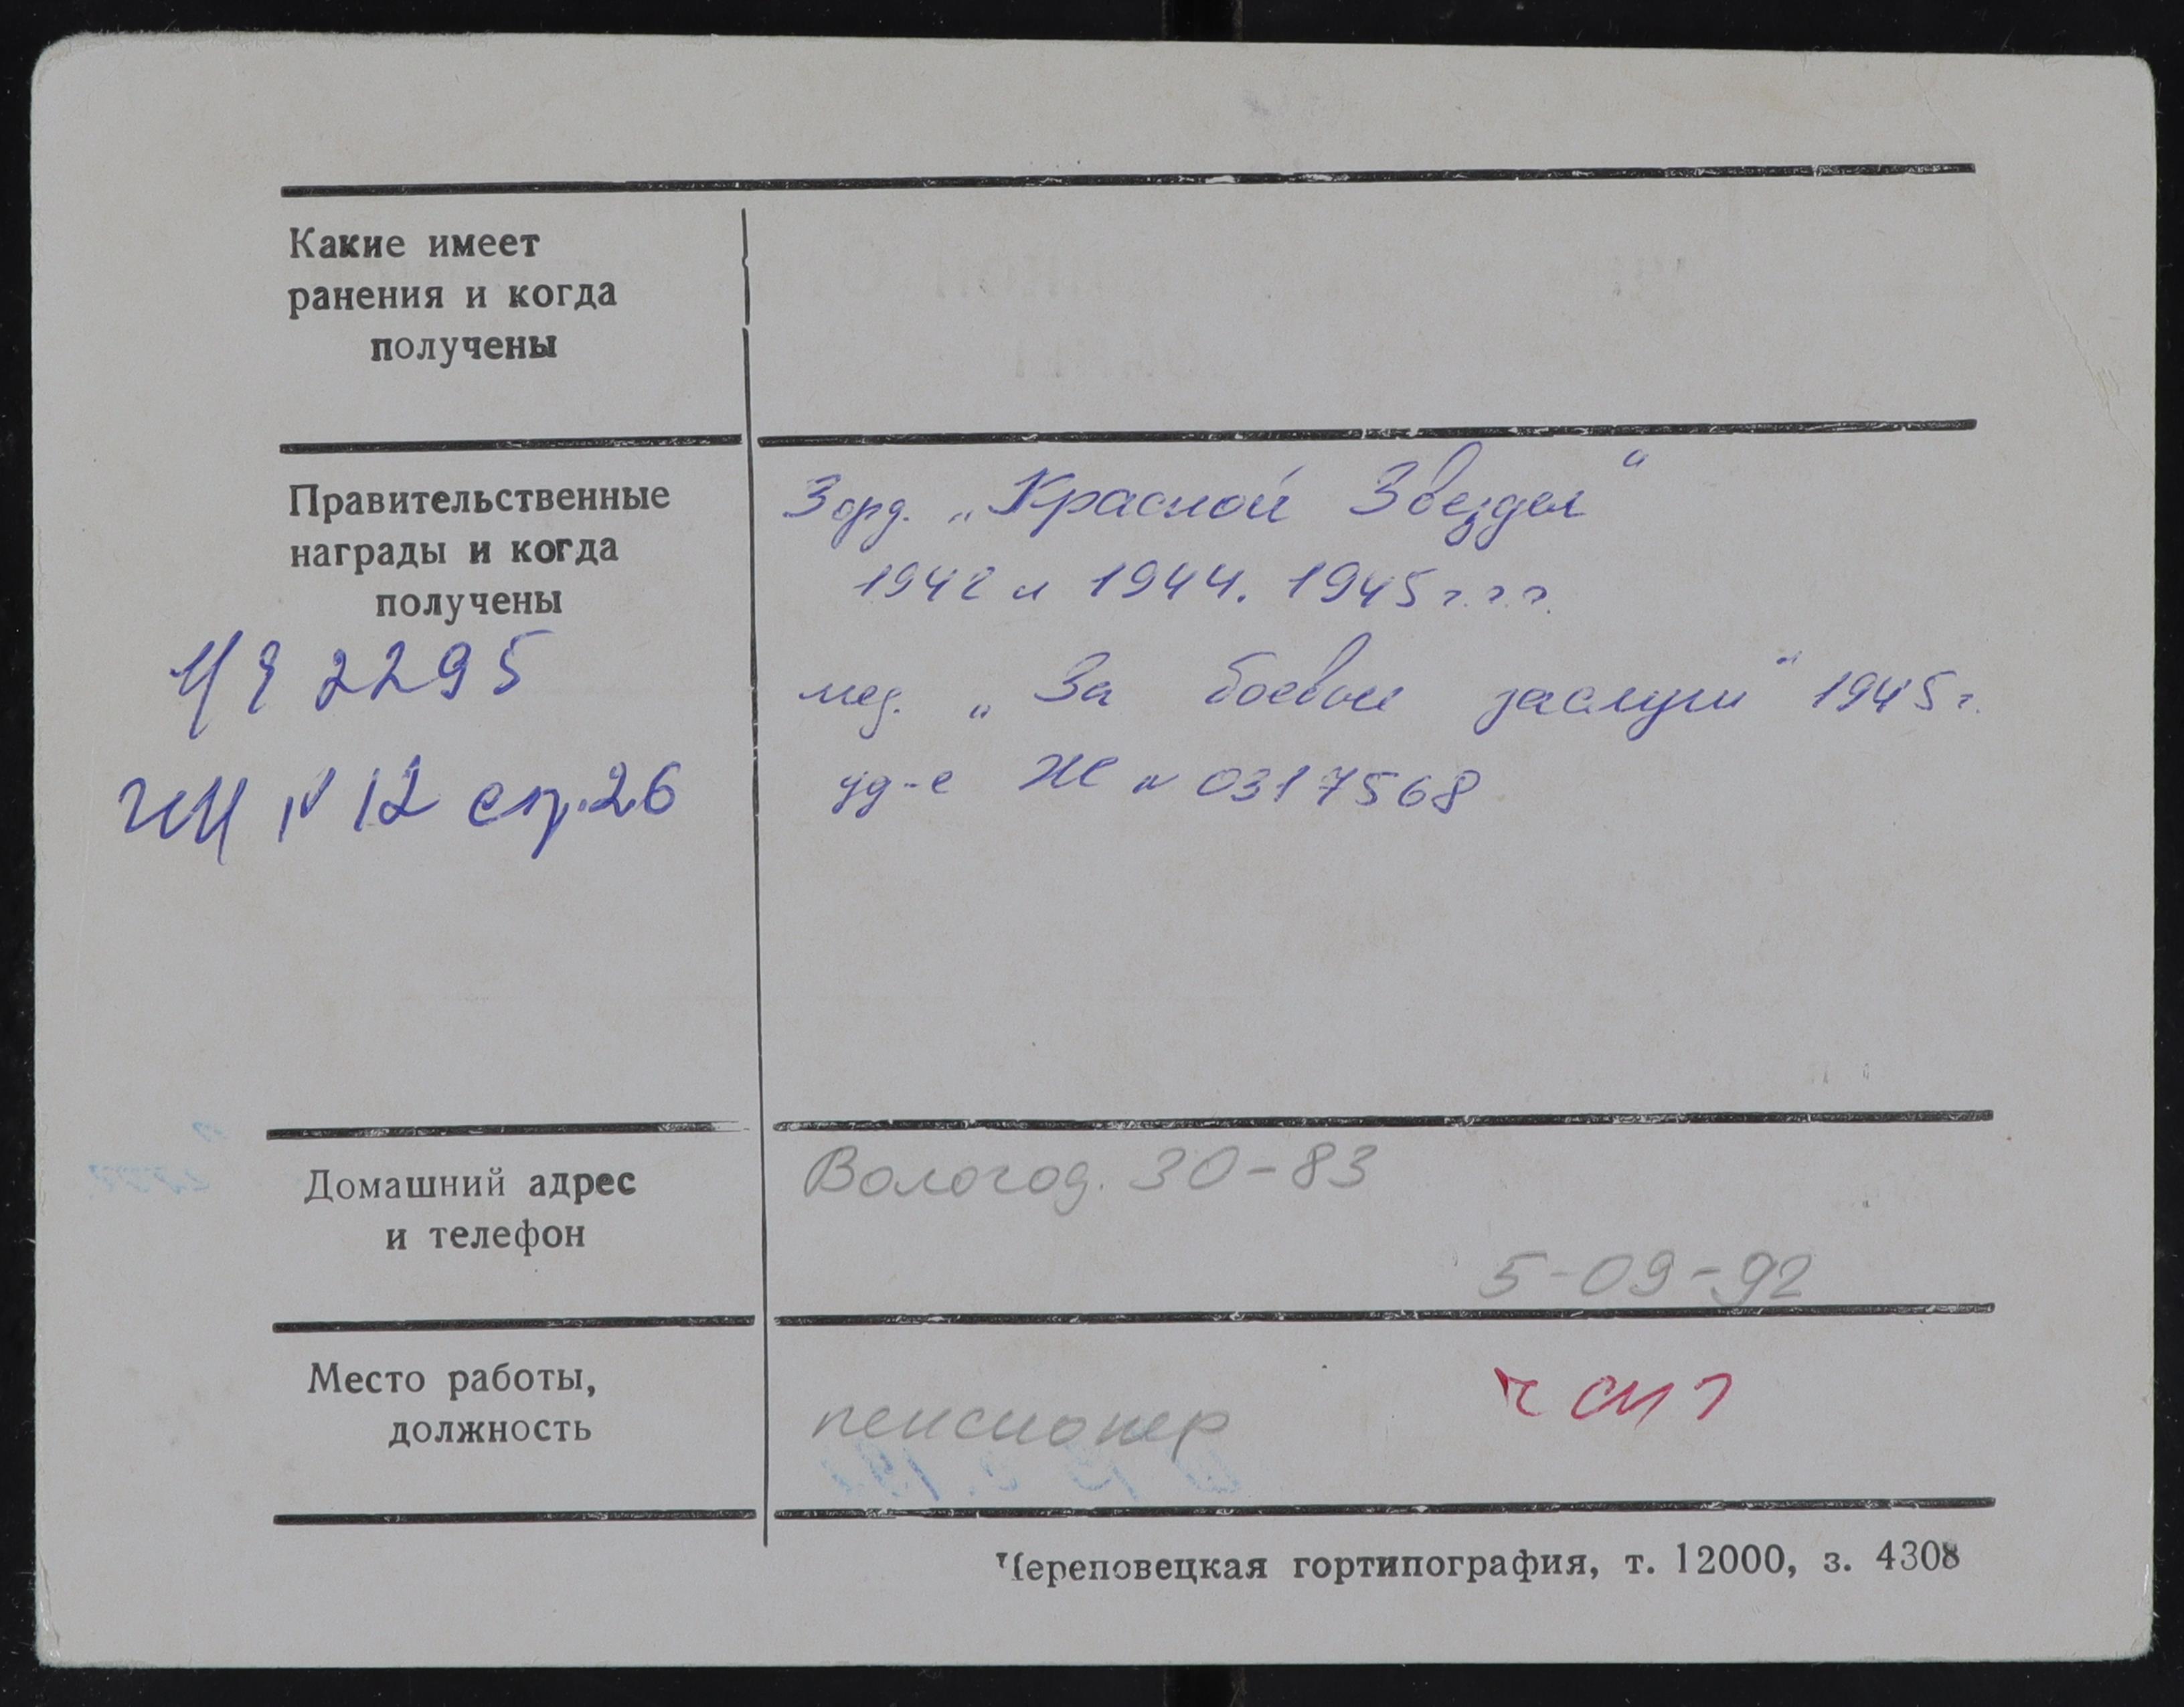 Какие имеет
ранения и когда
получены
Правительственные
награды и когда
получены
3 орд. „Красной Звезды"
1942 и 1944. 1945 г.г.г.
мед. „За боевые заслуги" 1945 г.
уд-е Ж № 0317568
2295
№ 12 стр. 26
Домашний адрес
и телефон
Вологод. 30-83
5-09-92
Место работы,
должность
пенсионер
Череповецкая гортипография, т. 12000, з. 4308